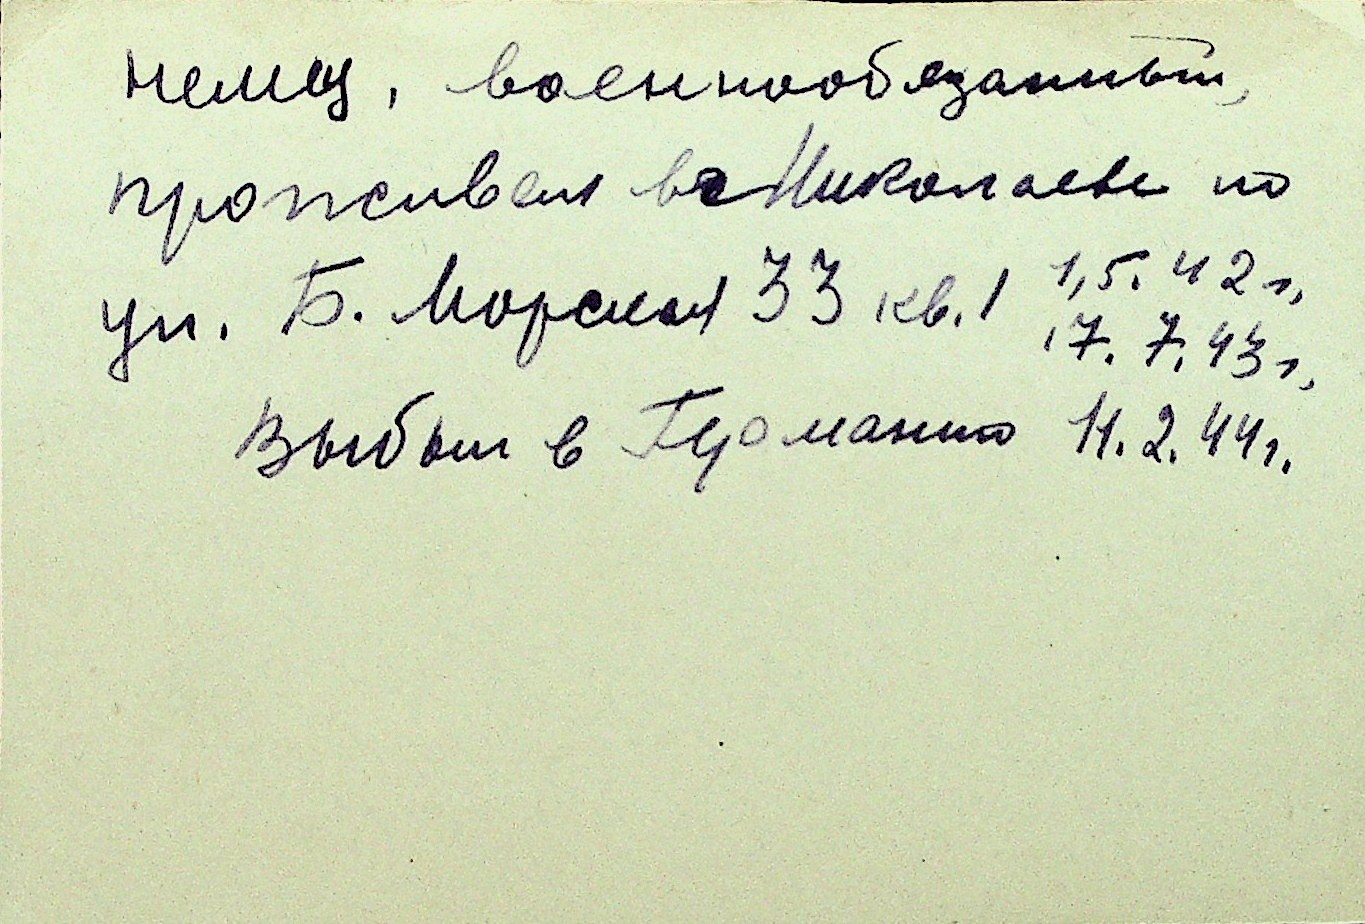 немец, военнообязанный,
проживал в г Николаеве по
ул. Б. Морская 33 кв. 1 1,5.42 г,
17. 7. 43 г,
Выбыл в Германию 11.2.44 г.